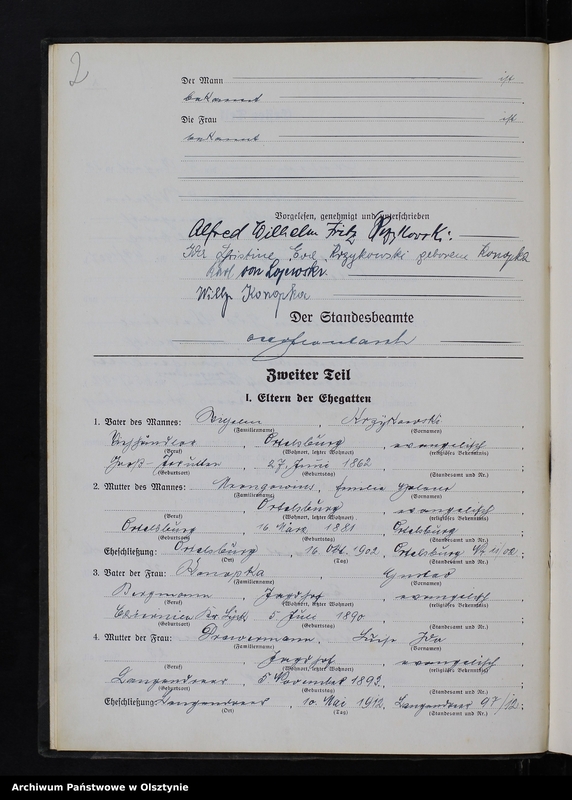 2
Der Mann ist
bekannt
Die Frau ist
bekannt
Vorgelesen, genehmigt und unterschrieben
Alfred Wilhelm Fritz
Christine Eva Krzykowski geborene Konopka
Karl von Lojewski.
Willy Konopka
Der Standesbeamte
Zweiter Teil
I. Eltern der Ehegatten
1. Vater des Mannes: , Krzykowski
(Familienname) (Vornamen)
, Ortelsburg , evangelisch
(Beruf) (Wohnort, letzter Wohnort) (religiöses Bekenntnis)
Groß- , 27. Juni 1862
(Geburtsort) (Geburtstag) (Standesamt und Nr.)
2. Mutter des Mannes: , Emilie
(Familienname) (Vornamen)
Ortelsburg , evangelisch
(Beruf) (Wohnort, letzter Wohnort) (religiöses Bekenntnis)
Ortelsburg , 16. März 1881 , Ortelsburg ;
(Geburtsort) (Geburtstag) (Standesamt und Nr.)
Eheschließung: Ortelsburg , 16. Okt. 1902, Ortelsburg /02 ;
(Ort) (Tag) (Standesamt und Nr.)
3. Vater der Frau: Konopka , Gustav
(Familienname) (Vornamen)
Bergmann , Jagdhof , evangelisch
(Beruf) (Wohnort, letzter Wohnort) (religiöses Bekenntnis)
Kr. Lyck 5 Juli 1890 ;
(Geburtsort) (Geburtstag) (Standesamt und Nr.)
4. Mutter der Frau: , Luise Ida
(Familienname) (Vornamen)
, Jagdhof , evangelisch
(Beruf) (Wohnort, letzter Wohnort) (religiöses Bekenntnis)
Langendreer , 5 November 1892, ;
(Geburtsort) (Geburtstag) (Standesamt und Nr.)
Eheschließung: Langendreer , 10. Mai 1912, Langendreer 97/12;
(Ort) (Tag) (Standesamt und Nr.)
Archiwum Państwowe w Olsztynie